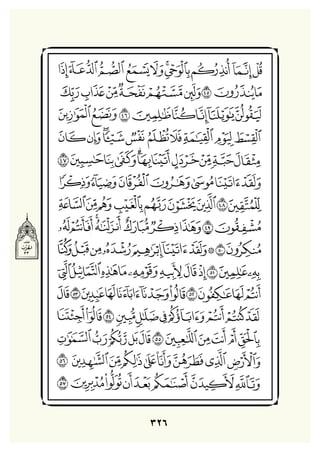 قُلْ إِنَّمَآ أُنذِرُكُم بِٱلْوَحْىِ ۚ وَلَا يَسْمَعُ ٱلصُّمُّ ٱلدُّعَآءَ إِذَا
مَا يُنذَرُونَ ٤٥ وَلَئِن مَّسَّتْهُمْ نَفْحَةٌ مِّنْ عَذَابِ رَبِّكَ
لَيَقُولُنَّ يَٰوَيْلَنَآ إِنَّا كُنَّا ظَٰلِمِينَ ٤٦ وَنَضَعُ ٱلْمَوَٰزِينَ
ٱلْقِسْطَ لِيَوْمِ ٱلْقِيَٰمَةِ فَلَا تُظْلَمُ نَفْسٌ شَيْـًٔا ۖ وَإِن كَانَ
مِثْقَالَ حَبَّةٍ مِّنْ خَرْدَلٍ أَتَيْنَا بِهَا ۗ وَكَفَىٰ بِنَا حَٰسِبِينَ ٤٧
وَلَقَدْ ءَاتَيْنَا مُوسَىٰ وَهَٰرُونَ ٱلْفُرْقَانَ وَضِيَآءً وَذِكْرًا
لِّلْمُتَّقِينَ ٤٨ ٱلَّذِينَ يَخْشَوْنَ رَبَّهُم بِٱلْغَيْبِ وَهُم مِّنَ ٱلسَّاعَةِ
مُشْفِقُونَ ٤٩ وَهَٰذَا ذِكْرٌ مُّبَارَكٌ أَنزَلْنَٰهُ ۚ أَفَأَنتُمْ لَهُۥ
مُنكِرُونَ ٥٠ ۞ وَلَقَدْ ءَاتَيْنَآ إِبْرَٰهِيمَ رُشْدَهُۥ مِن قَبْلُ وَكُنَّا
بِهِۦ عَٰلِمِينَ ٥١ إِذْ قَالَ لِأَبِيهِ وَقَوْمِهِۦ مَا هَٰذِهِ ٱلتَّمَاثِيلُ ٱلَّتِىٓ
أَنتُمْ لَهَا عَٰكِفُونَ ٥٢ قَالُوا۟ وَجَدْنَآ ءَابَآءَنَا لَهَا عَٰبِدِينَ ٥٣ قَالَ
لَقَدْ كُنتُمْ أَنتُمْ وَءَابَآؤُكُمْ فِى ضَلَٰلٍ مُّبِينٍ ٥٤ قَالُوٓا۟ أَجِئْتَنَا
بِٱلْحَقِّ أَمْ أَنتَ مِنَ ٱللَّٰعِبِينَ ٥٥ قَالَ بَل رَّبُّكُمْ رَبُّ ٱلسَّمَٰوَٰتِ
وَٱلْأَرْضِ ٱلَّذِى فَطَرَهُنَّ وَأَنَا۠ عَلَىٰ ذَٰلِكُم مِّنَ ٱلشَّٰهِدِينَ ٥٦
وَتَٱللَّهِ لَأَكِيدَنَّ أَصْنَٰمَكُم بَعْدَ أَن تُوَلُّوا۟ مُدْبِرِينَ ٥٧
٣٢٦